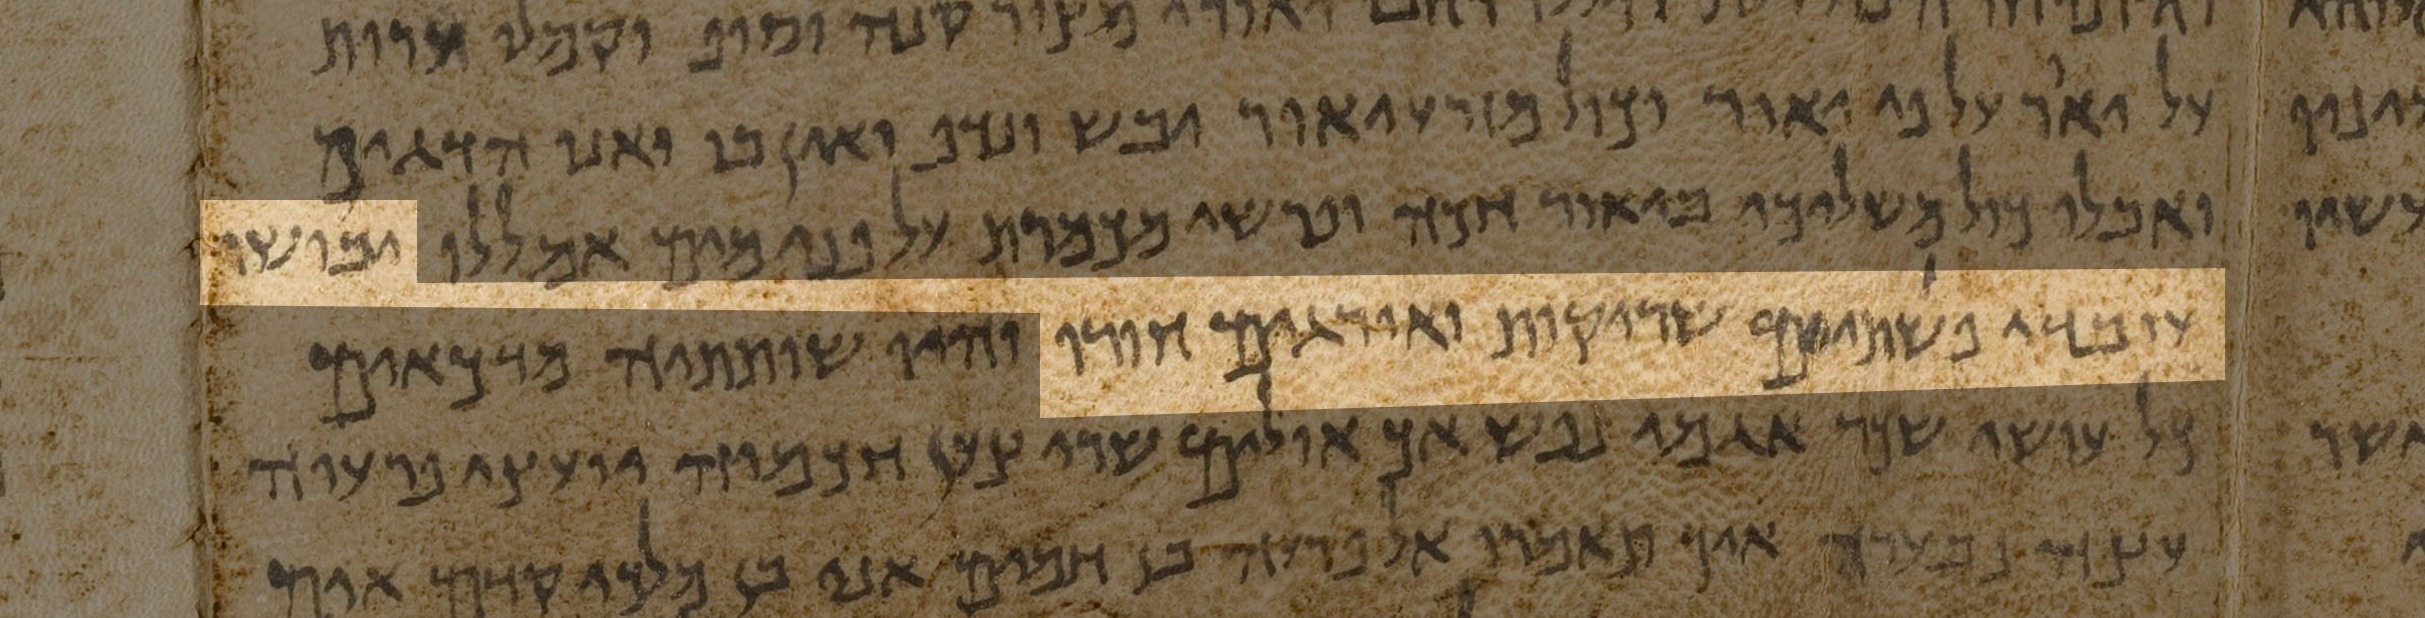 יאורי מצור קנה וסוף וקמלו ערות
על יאר על פי יאור וכול מזרע יאור יבש ונדף ואין בו ואנו הדגים
ואבלו כול משליכי ביאור חכה ופרשי מכמרת על פני מים אמללו ובושו
עובדי פשתים שריקות ואורגים חורו והיו שותתיה מדכאים
כל עושי שכר אגמי נפש אך אוילים שרי צען חכמיה יועצי פרעוה
עצה נבערה איך תאמרו אל פרעה בן חכמים אני בן מלכי קדם אים